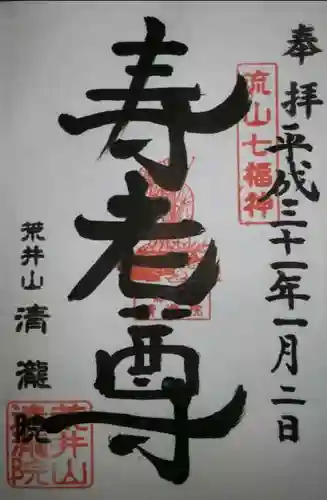 奉拝
平成三十一年一月二日
流山七福神
寿老尊
荒井山
清瀧院
荒井山
清瀧院